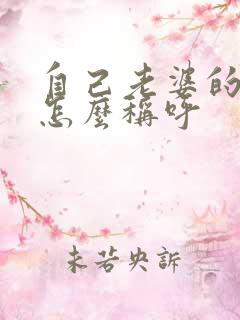 自己老婆的
怎麼稱呼
未若央訴